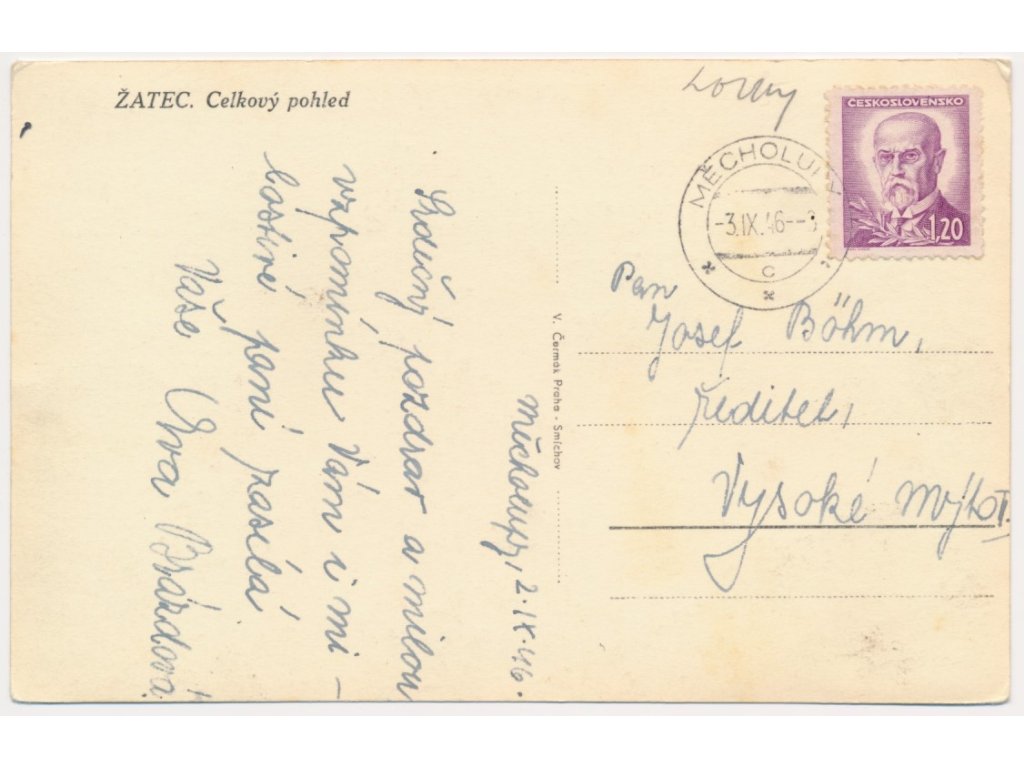 ŽATEC. Celkový pohled
ČESKOSLOVENSKO
1,20
MĚCHOLU
-3.IX.46--
C
Měcholupy, 2.IX.46.
Srdečný pozdrav a milou
vzpomínku Vám i mi-
lostivé paní zasílá
Vaše Eva Brázdová
V. Čermák Praha - Smíchov
Pan
Josef Böhm,
ředitel,
Vysoké Mýto I.